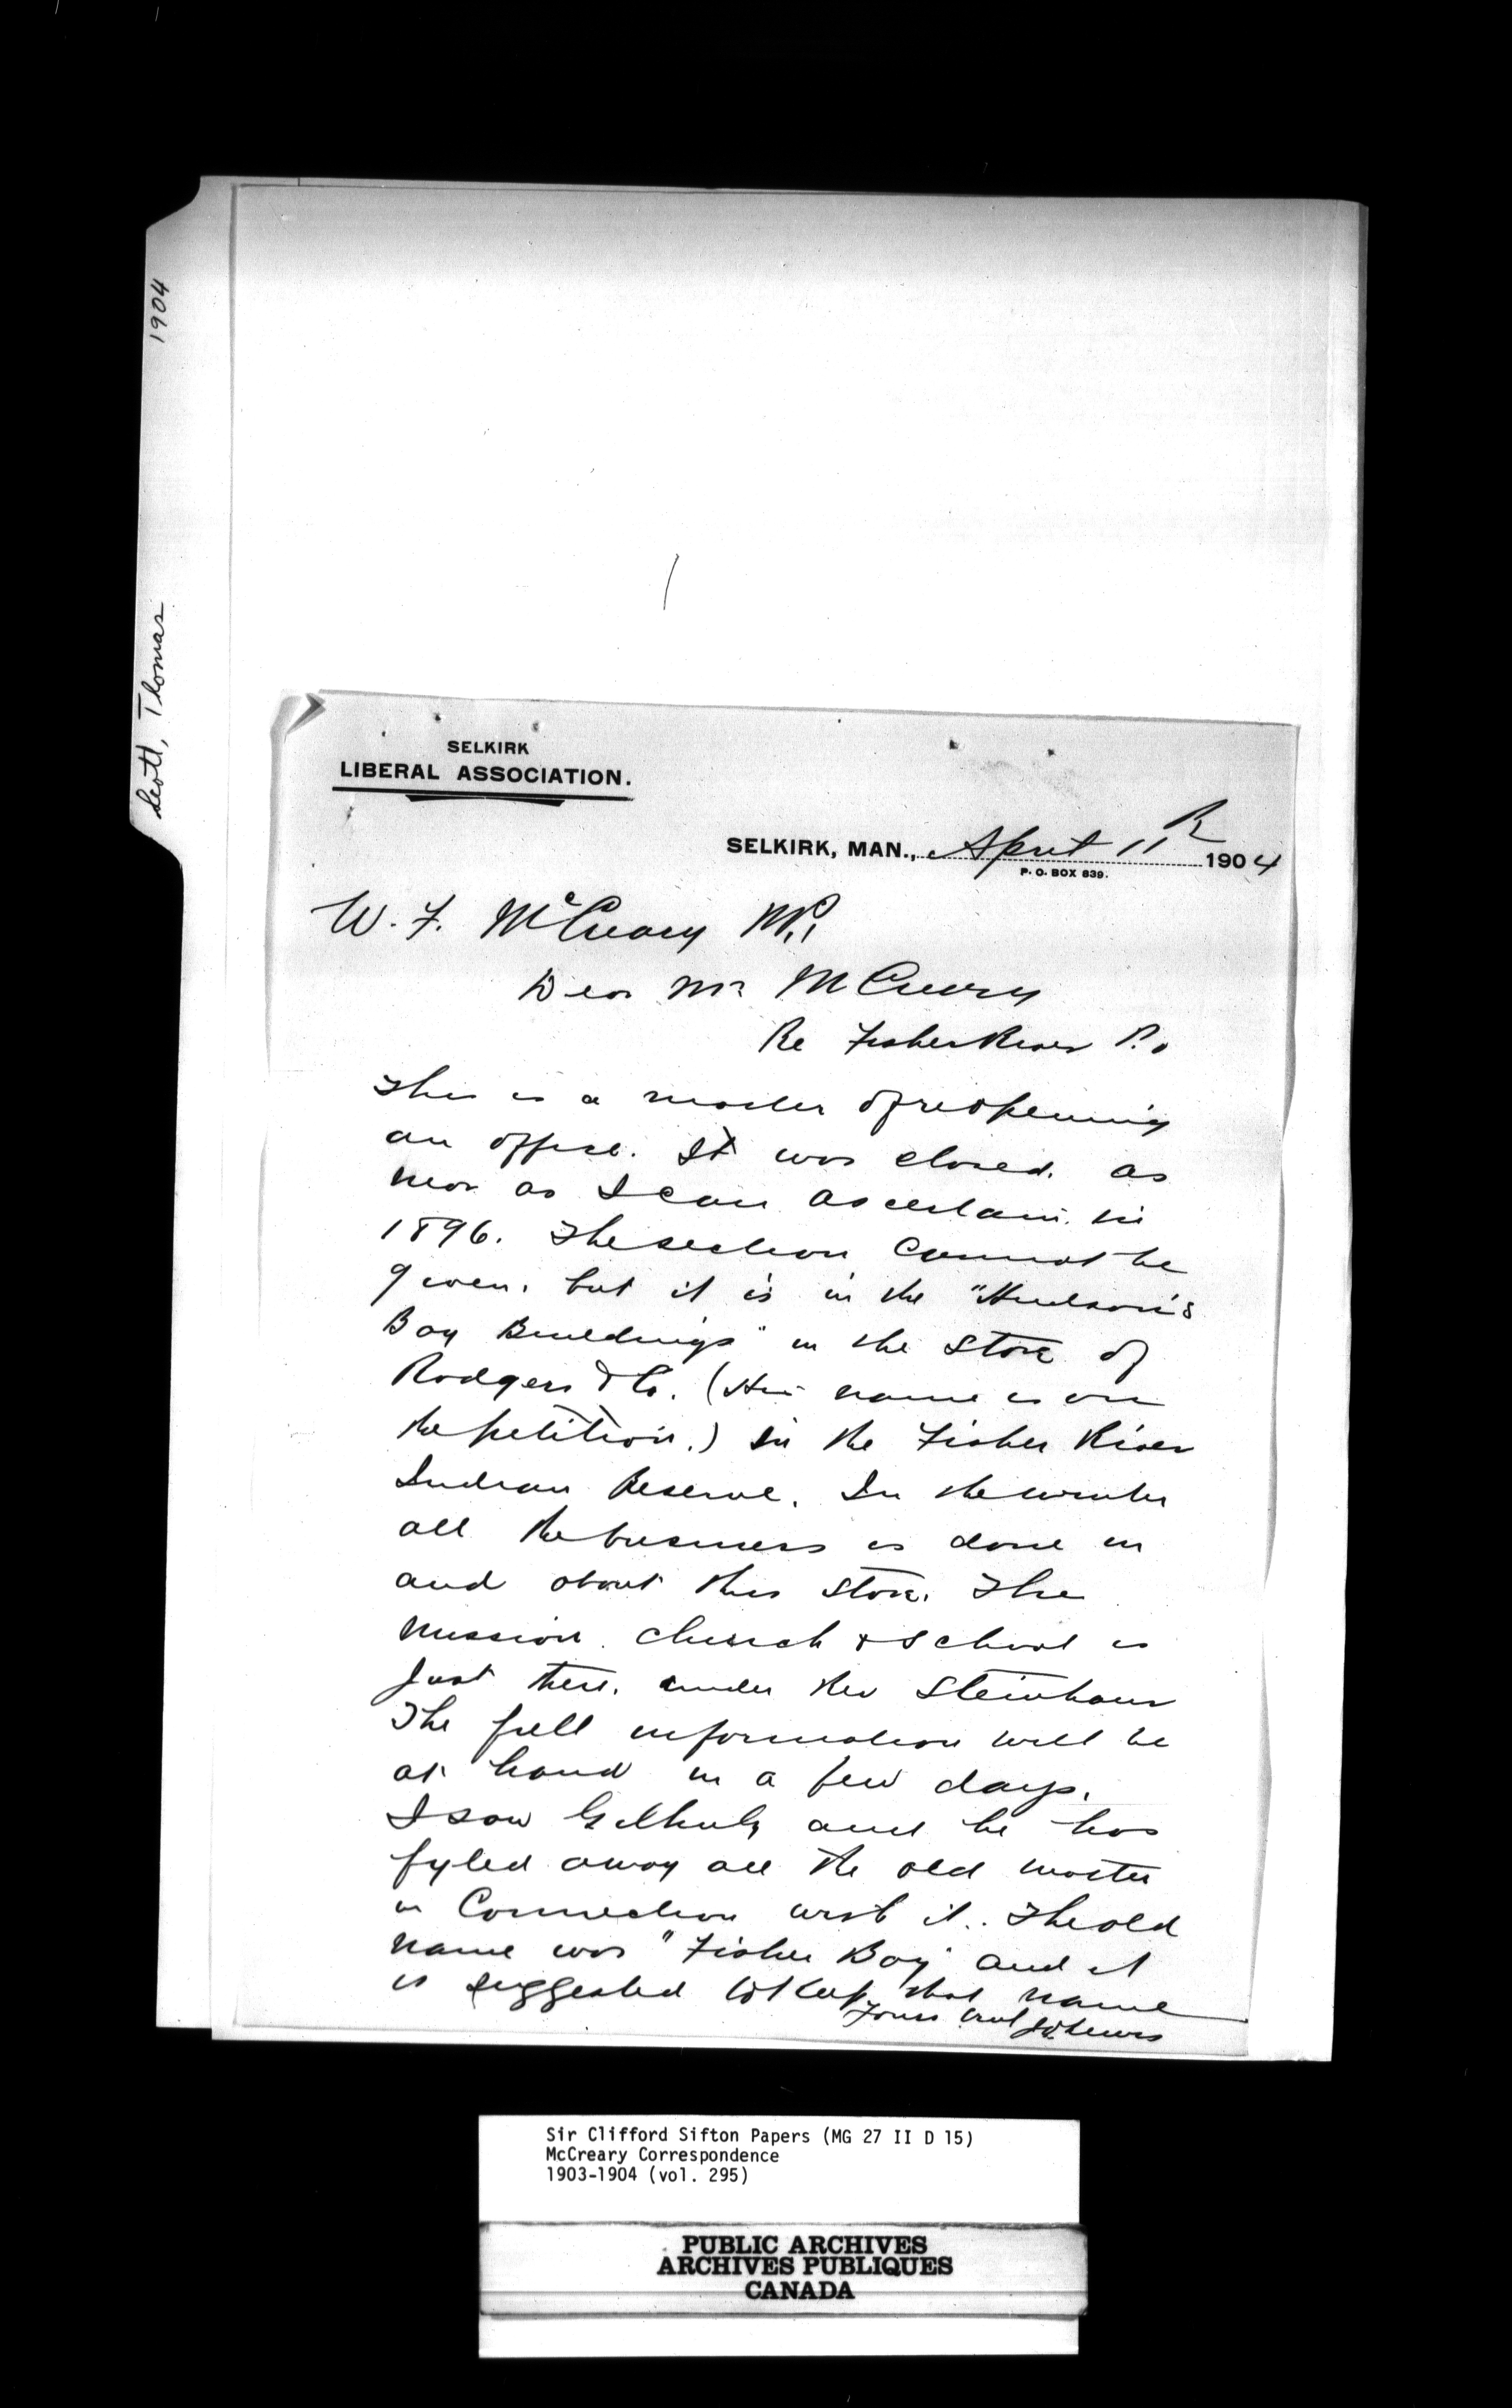 1904
Scott, Thomas
SELKIRK
LIBERAL ASSOCIATION.
SELKIRK, MAN., April 11th 1904
P. O. BOX 839.
W. F. McCreary M.P.
Dear Mr McCreary
Re Fisher River P.O
This is a matter of reopening
an office. It was closed, as
near as I can ascertain in
1896. The section cannot be
given, but it is in the "Hudson's
Bay Buildings" in the store of
Rodgers & Co. (His name is on
the petition.) in the Fisher River
Indian Reserve. In the winter
all the business is done in
and about this store. The
mission church & school is
just there, under Rev Steinhaur
The full information will be
at hand in a few days.
I saw and he has
fyled away all the old matter
in connection with it. The old
name was "Fisher Bay" and it
is suggested to keep that name
Yours truly
Sir Clifford Sifton Papers (MG 27 II D 15)
McCreary Correspondence
1903-1904 (vol. 295)
PUBLIC ARCHIVES
ARCHIVES PUBLIQUES
CANADA